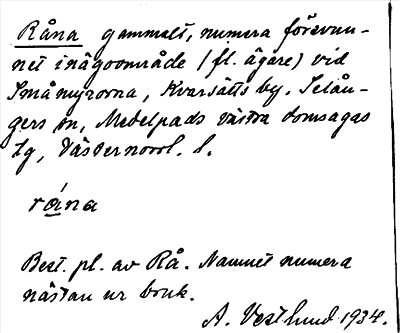 Råna gammalt, numera försvun-
net inägoområde (fl. ägare) vid
Småmyrorna, Kvarsätts by. Selån-
gers sn, Medelpads västra domsagas
tg, Västernorrl. l.
råna
Best. pl. av Rå. Namnet numera
nästan ur bruk.
A. Vestlund 1934.